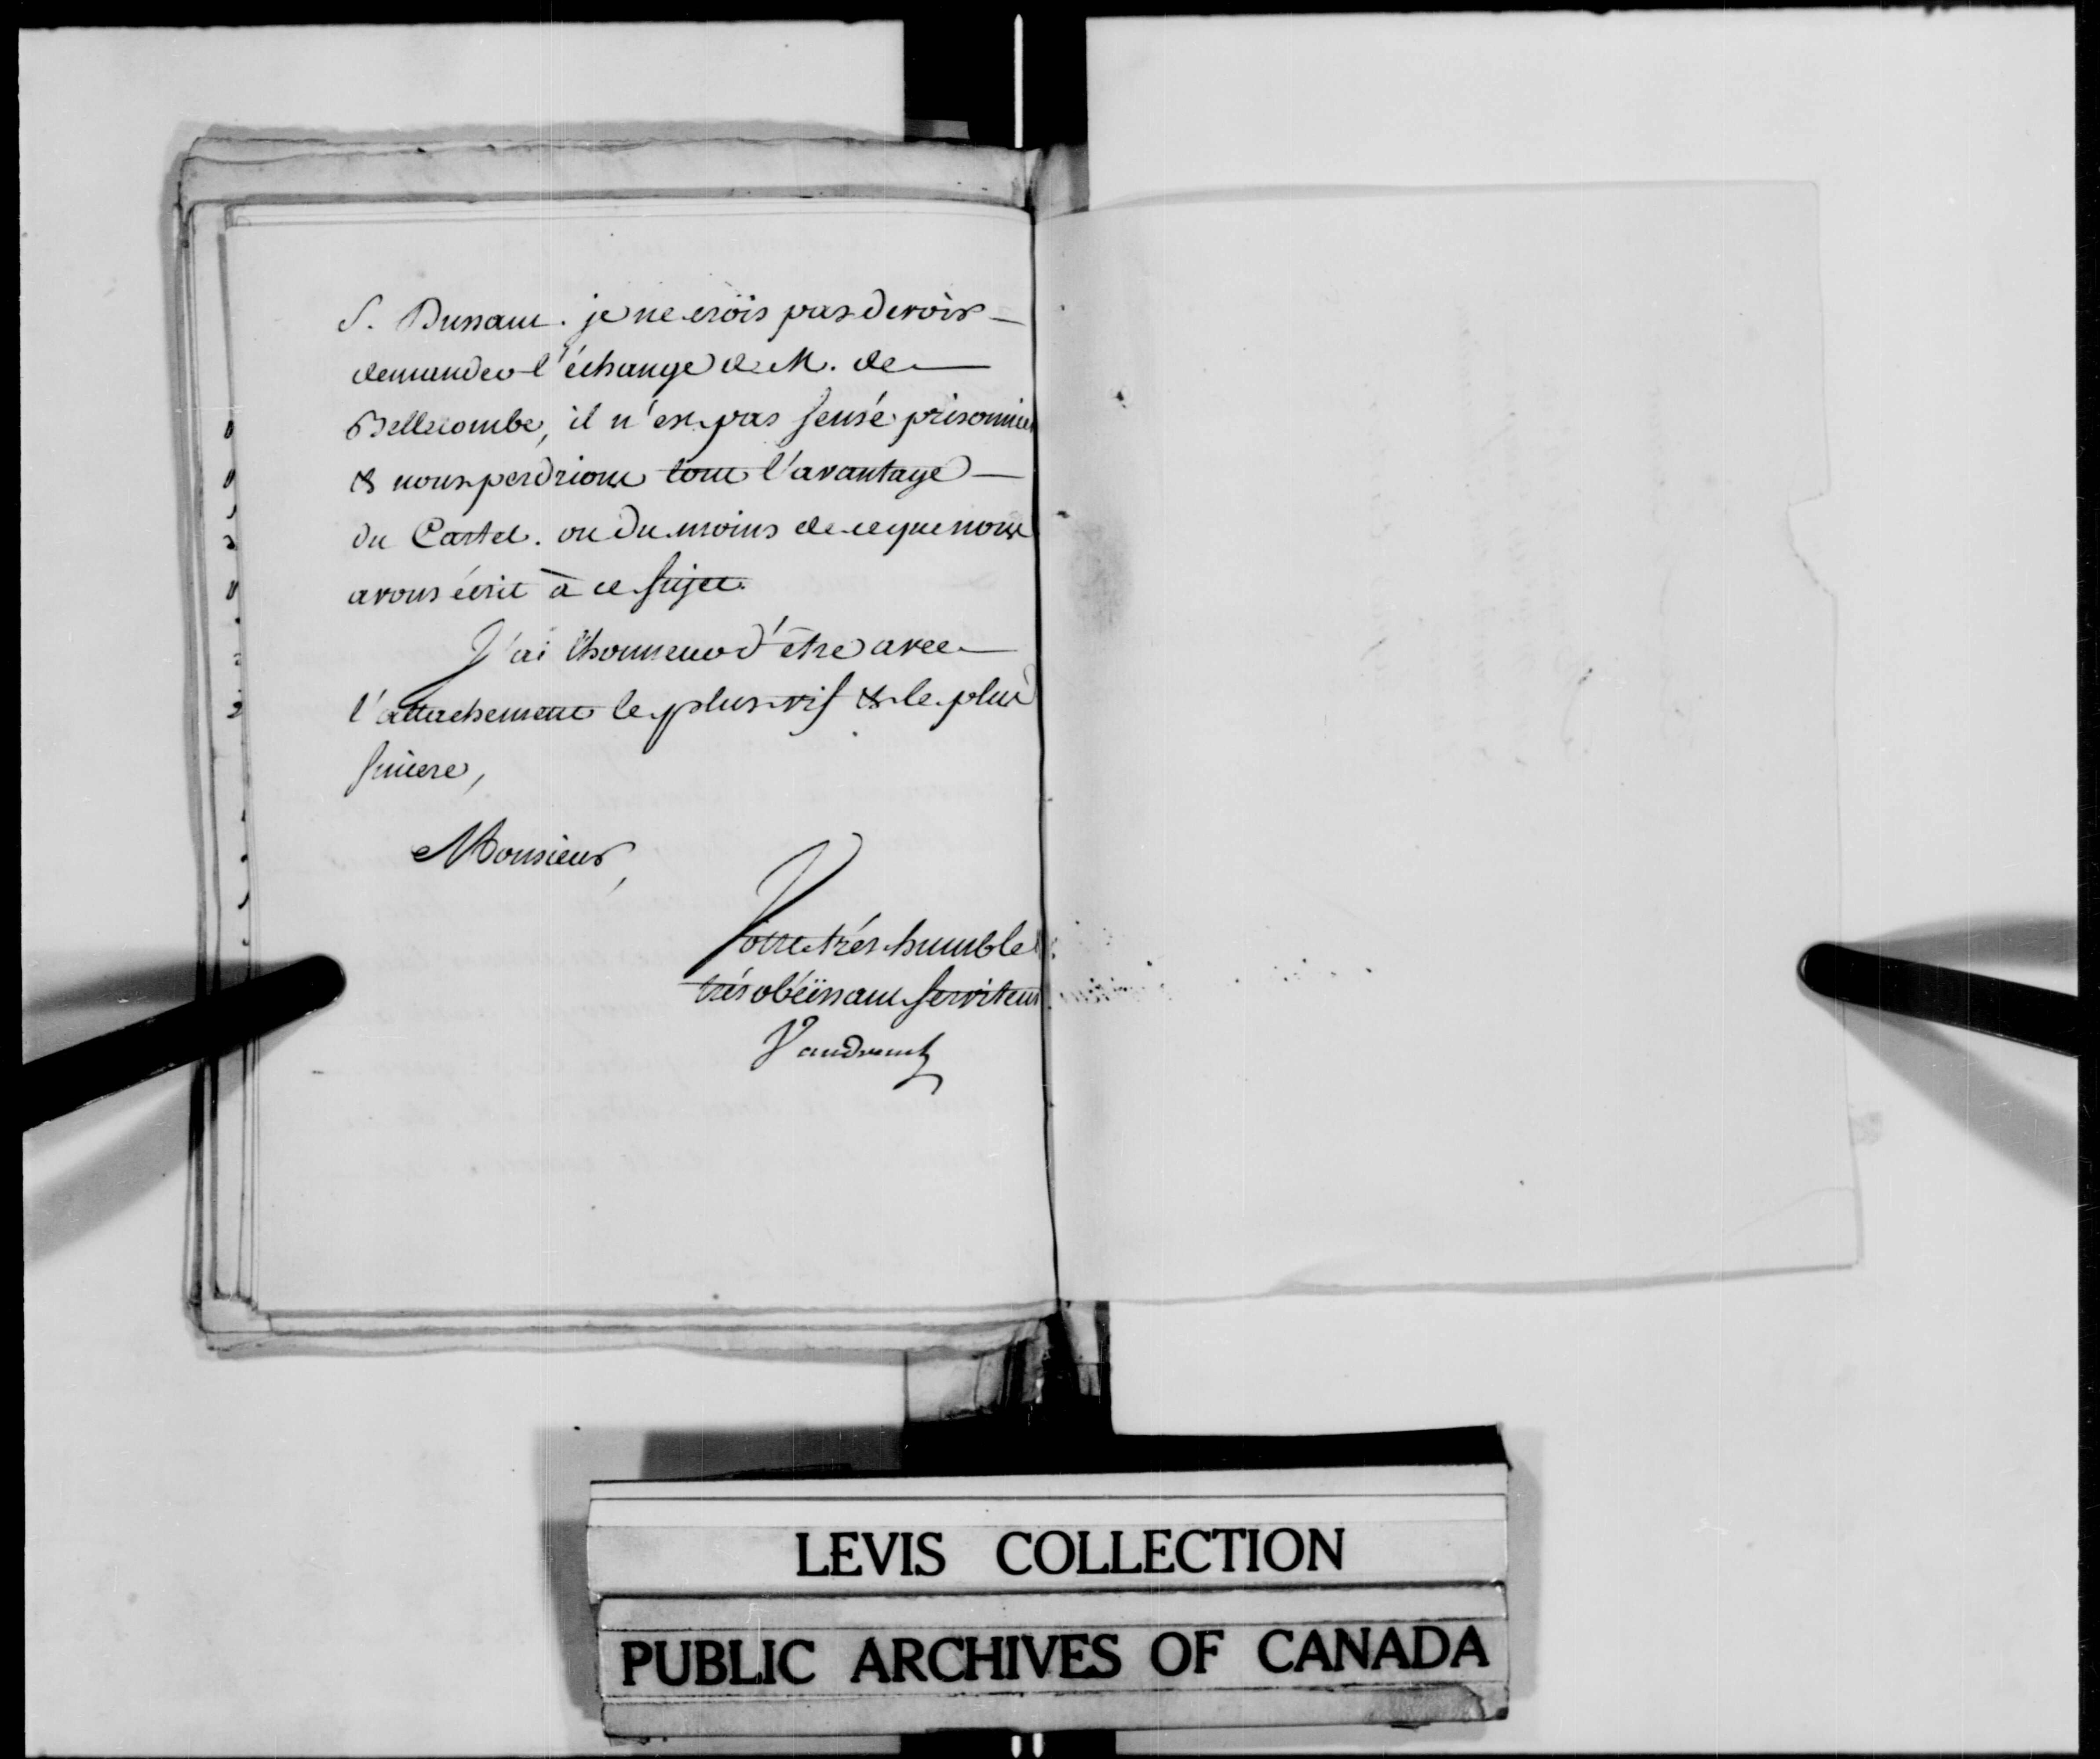 S. Dussaut. je ne crois pas devoir
demander l'échange de M. de
Bellecombe, il n'est pas sensé prisonnier
& nous perdrions tout l'avantage
du Cartel. ou du moins de ce que nous
avons écrit à ce sujet.
J'ai l'honneur d'être avec
l'attachement le plus vif & le plus
sincere,
Monsieur,
Votre très humble
très obéissant serviteur
Vaudreuil
LEVIS COLLECTION
PUBLIC ARCHIVES OF CANADA